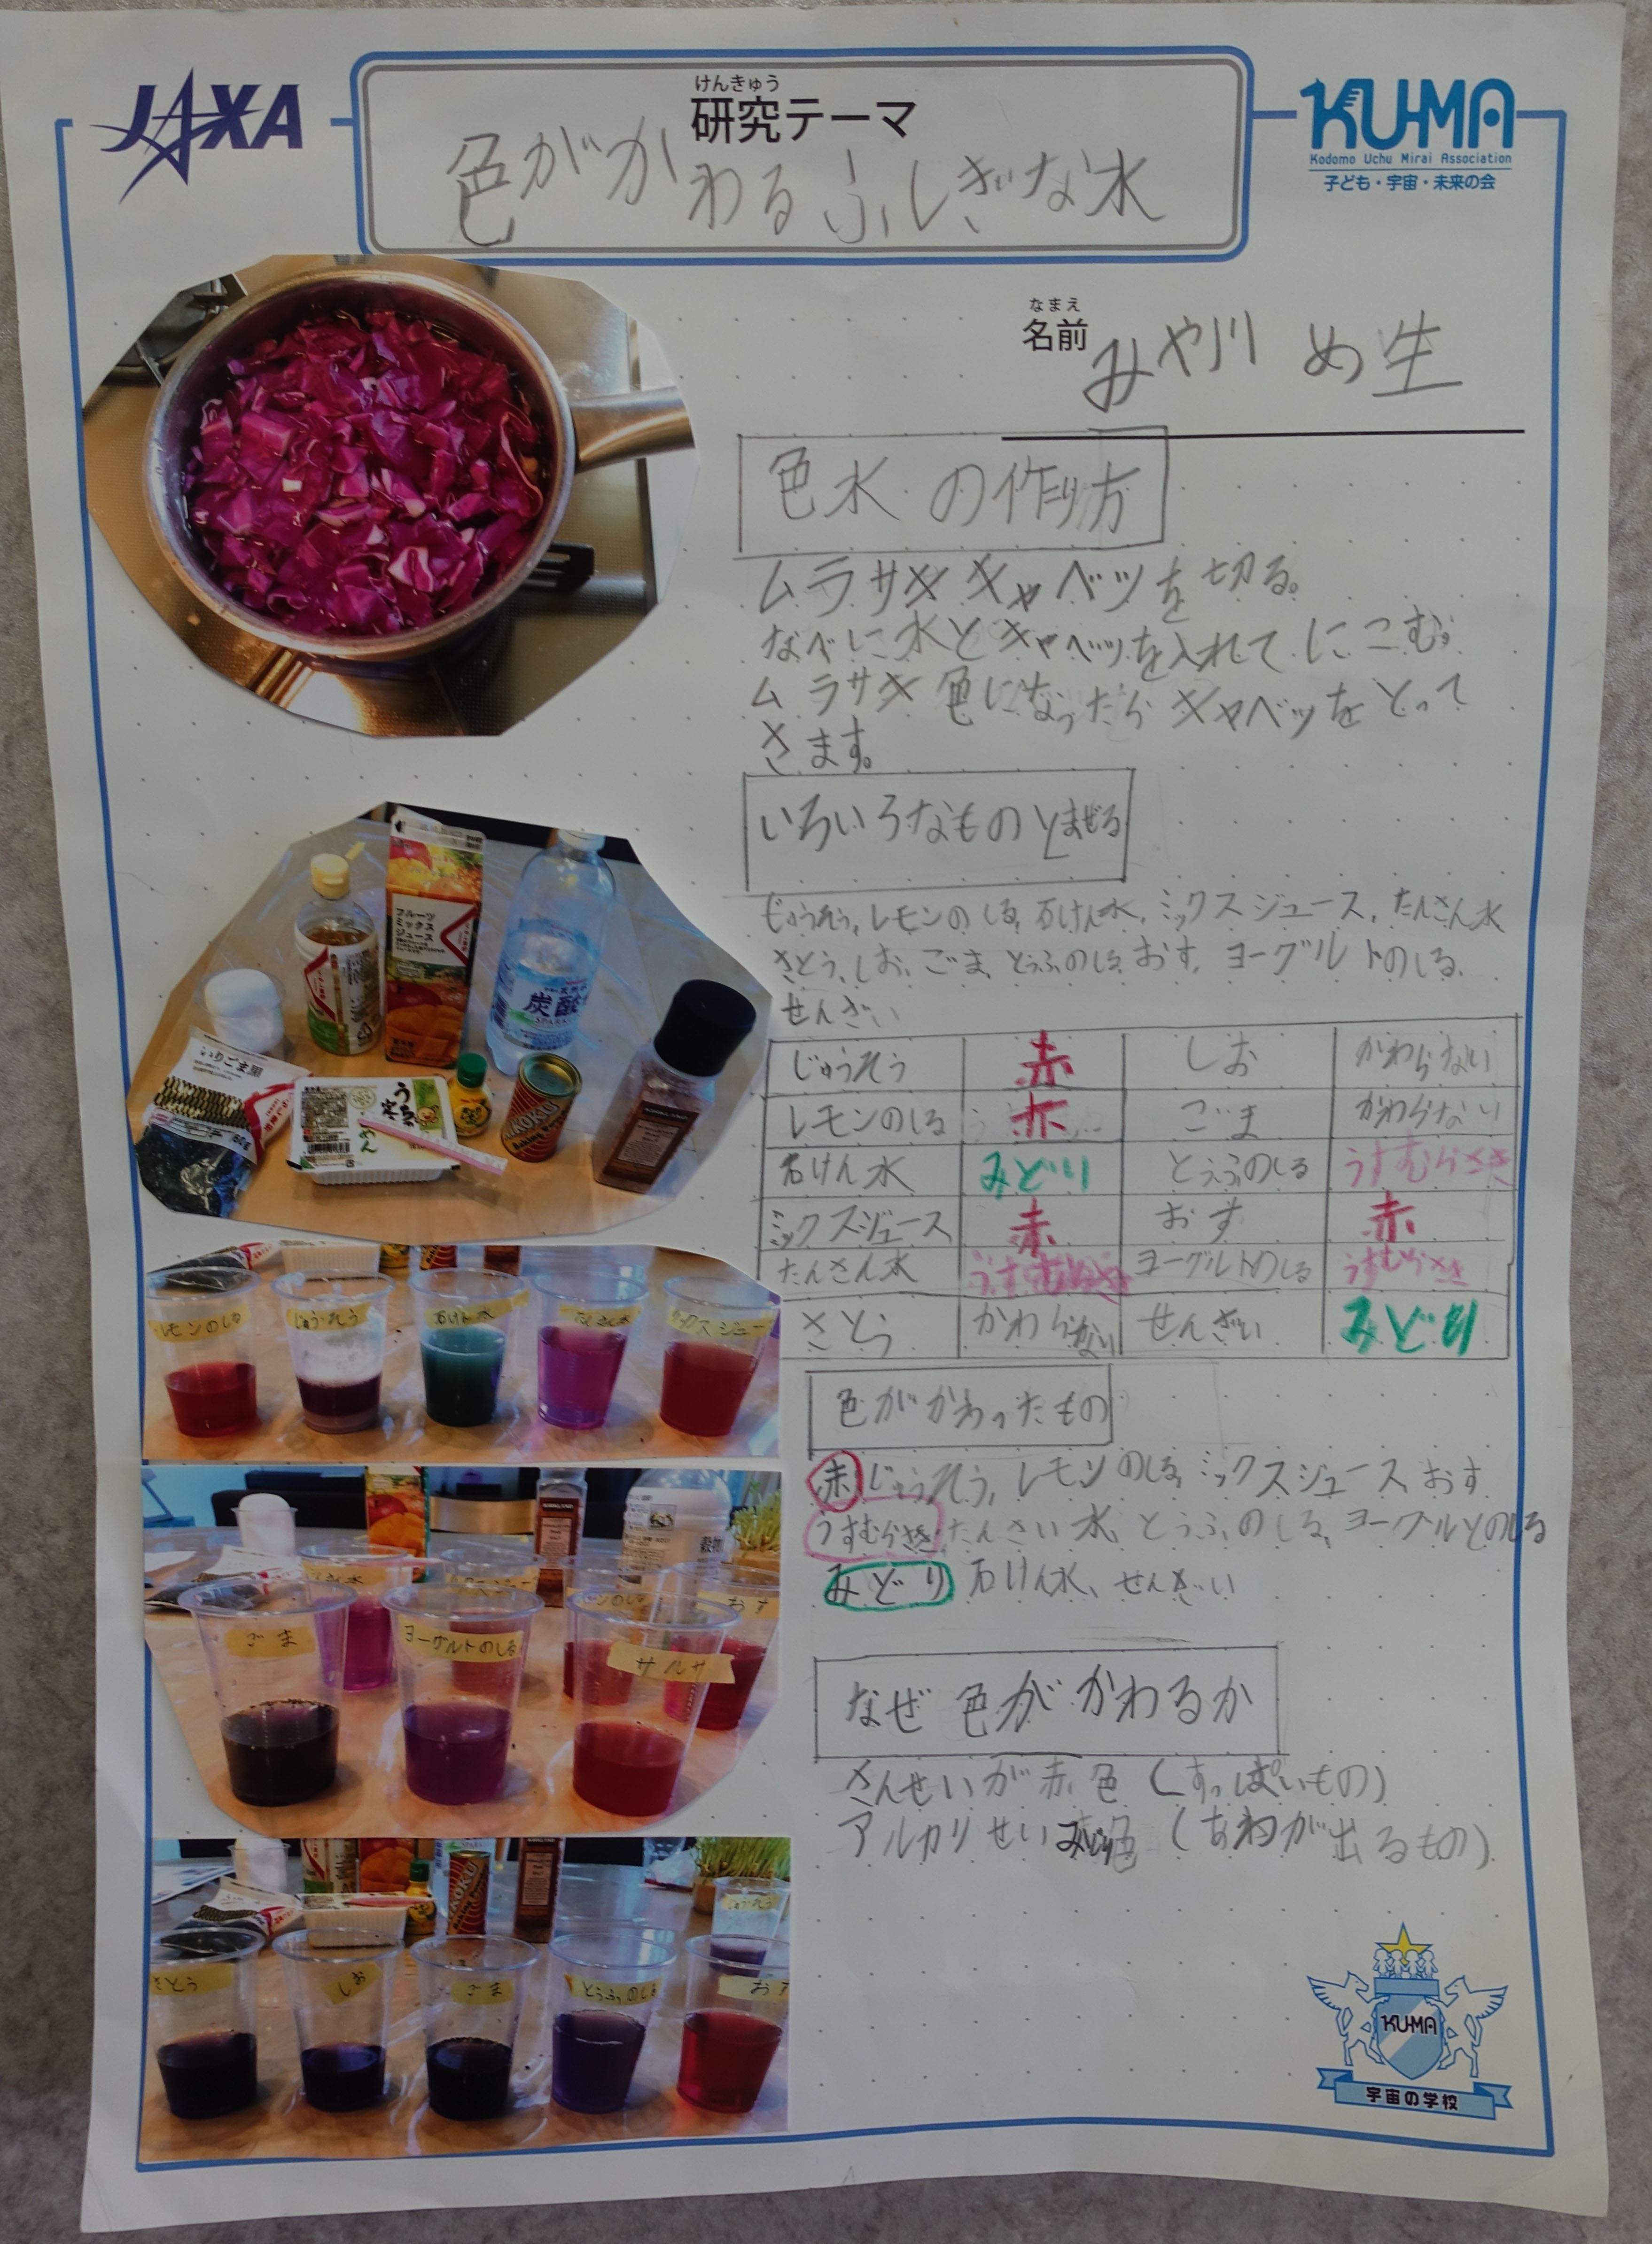 JAXA
けんきゅう
研究テーマ
色がかわるふしぎな水
KU-MA
Kodomo Uchu Mirai Association
子ども・宇宙・未来の会
なまえ
名前 みや川 め生
色水の作り方
ムラサキキャベツを切る。
なべに水とキャベツを入れてにこむ。
ムラサキ色になったらキャベツをとって
きます。
いろいろなものとまぜる
じゅうそう、レモンのしる、石けん水、ミックスジュース、たんさん水
さとう、しお、ごま、とうふのしる、おす、ヨーグルトのしる、
せんざい
じゅうそう 赤 しお かわらない
レモンのしる 赤 ごま かわらない
石けん水 みどり とうふのしる うすむらさき
ミックスジュース 赤 おす 赤
たんさん水 うすむらさき ヨーグルトのしる うすむらさき
さとう かわらない せんざい みどり
色がかわったもの
赤 じゅうそう、レモンのしる、ミックスジュース、おす
うすむらさき たんさい水、とうふのしる、ヨーグルとのしる
みどり 石けん水、せんざい
なぜ色がかわるか
さんせいが赤色(すっぱいもの)
アルカリせいみどり色(あわが出るもの)
フルーツ
ミックス
ジュース
炭酸
SPARK
いりごま黒
レモンのしる
じゅうそう
石けん水
たんさん水
ックスジュー
ごま
ヨーグルトのしる
サルサ
おす
穀物
さとう
しお
ごま
とうふのしる
おす
じゅうそう
KU-MA
宇宙の学校